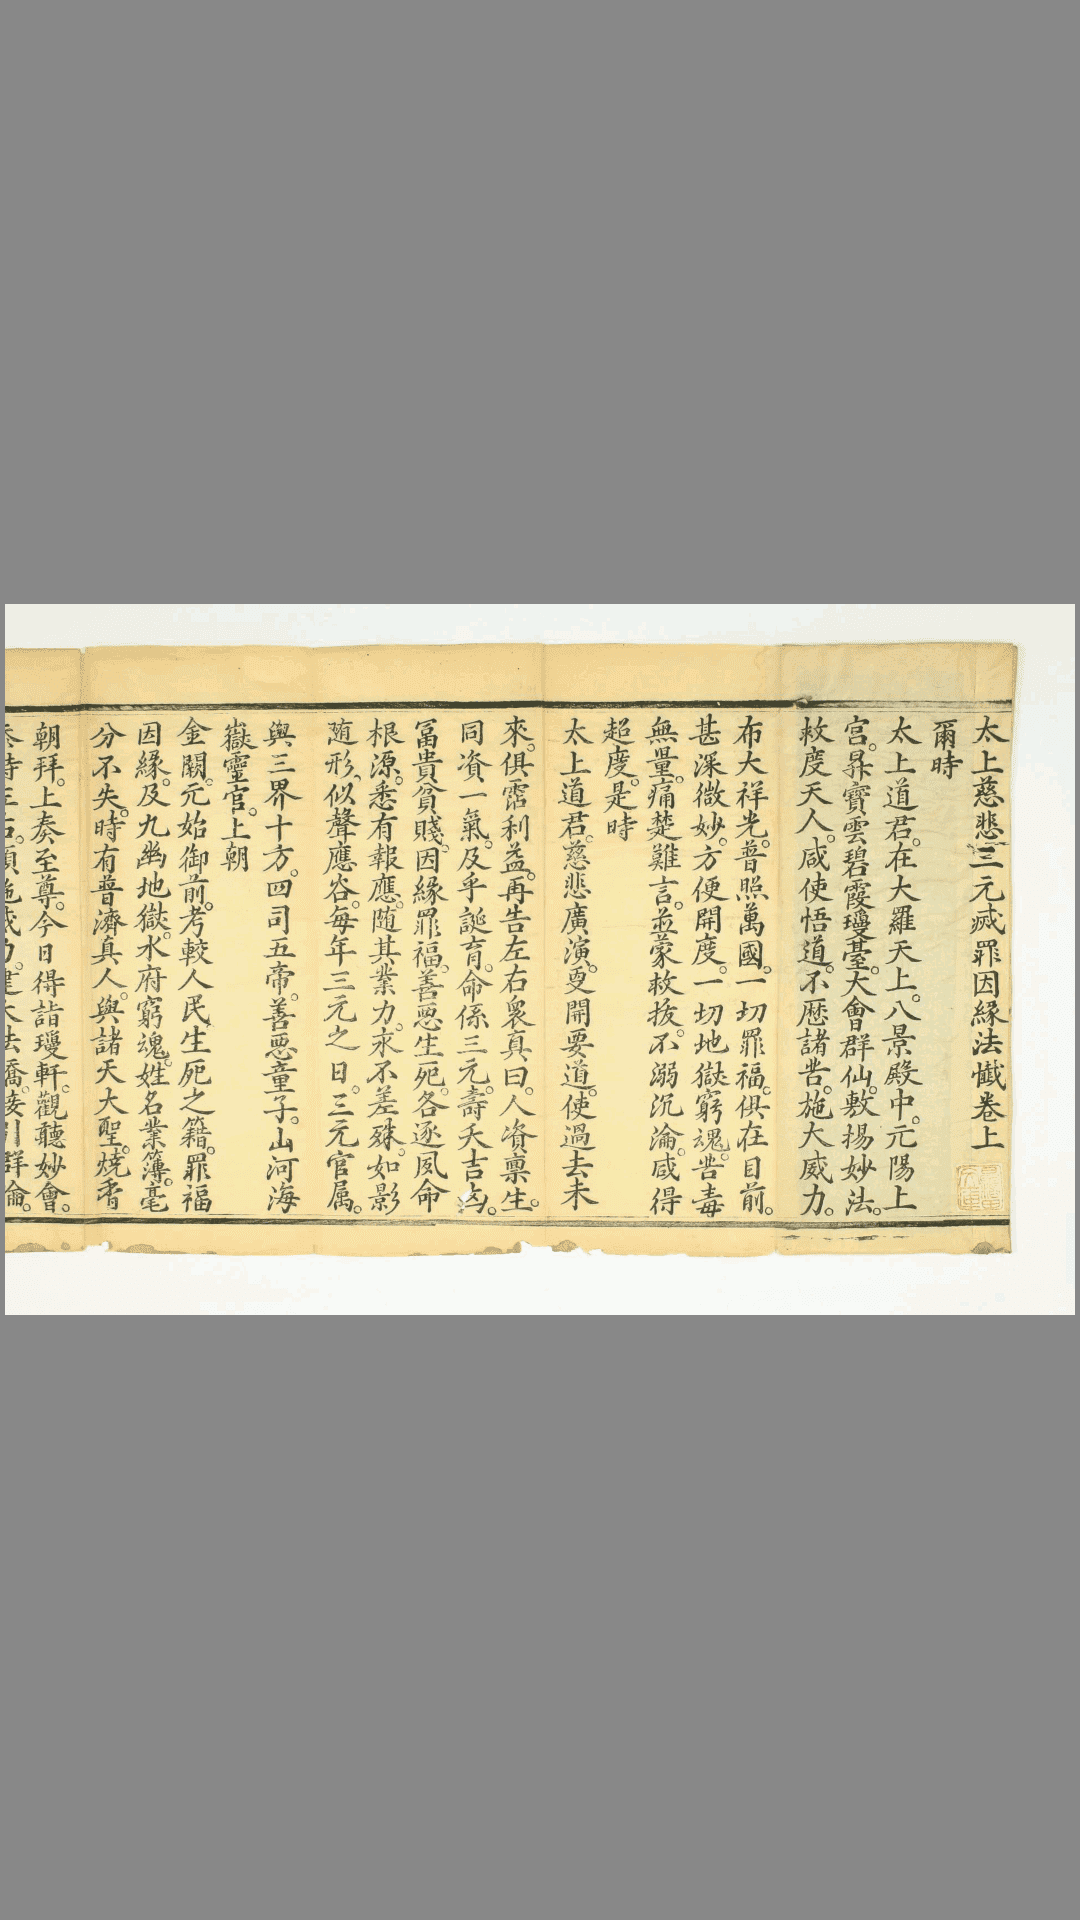 太上慈悲三元滅罪因緣法懺卷上
爾時
太上道君。在大羅天上。八景殿中。元陽上
宮。昇寶雲碧霞瓊臺。大會群仙。敷揚妙法。
救度天人。咸使悟道。不歷諸苦。施大威力。
布大祥光。普照萬國。一切罪福。俱在目前。
甚深微妙。方便開度。一切地獄窮魂。苦毒
無量。痛楚難言。並蒙救拔。不溺沉淪。咸得
超度。是時
太上道君。慈悲廣演。更開要道。使過去未
來。俱霑利益。再告左右衆真曰。人資稟生。
同資一氣。及乎誕育。命係三元。壽夭吉凶。
冨貴貧賤。因緣罪福。善惡生死。各逐夙命
根源。悉有報應。随其業力。永不差殊。如影
随形。似聲應谷。每年三元之日。三元官属。
與三界十方。四司五帝。善惡童子。山河海
嶽靈官。上朝
金闕。元始御前。考較人民生死之籍。罪福
因緣。及九幽地獄。水府窮魂。姓名業簿。毫
分不失。時有普濟真人。與諸天大聖。燒香
朝拜。上奏至尊。今日得詣瓊軒。觀聽妙會。